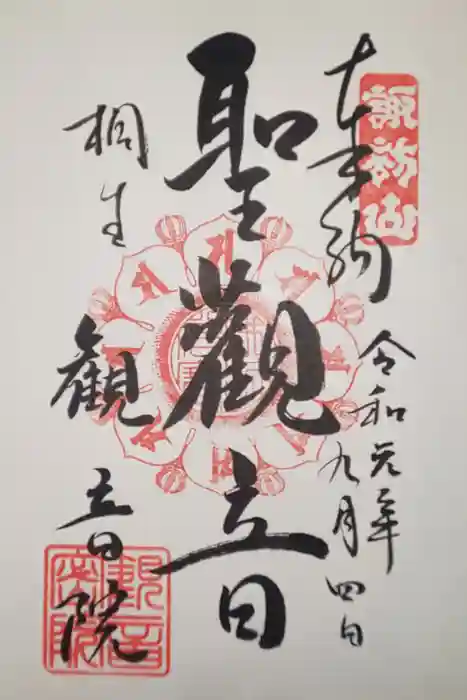 奉拝
諏訪山
令和元年
九月四日
聖觀音
桐生
観音院